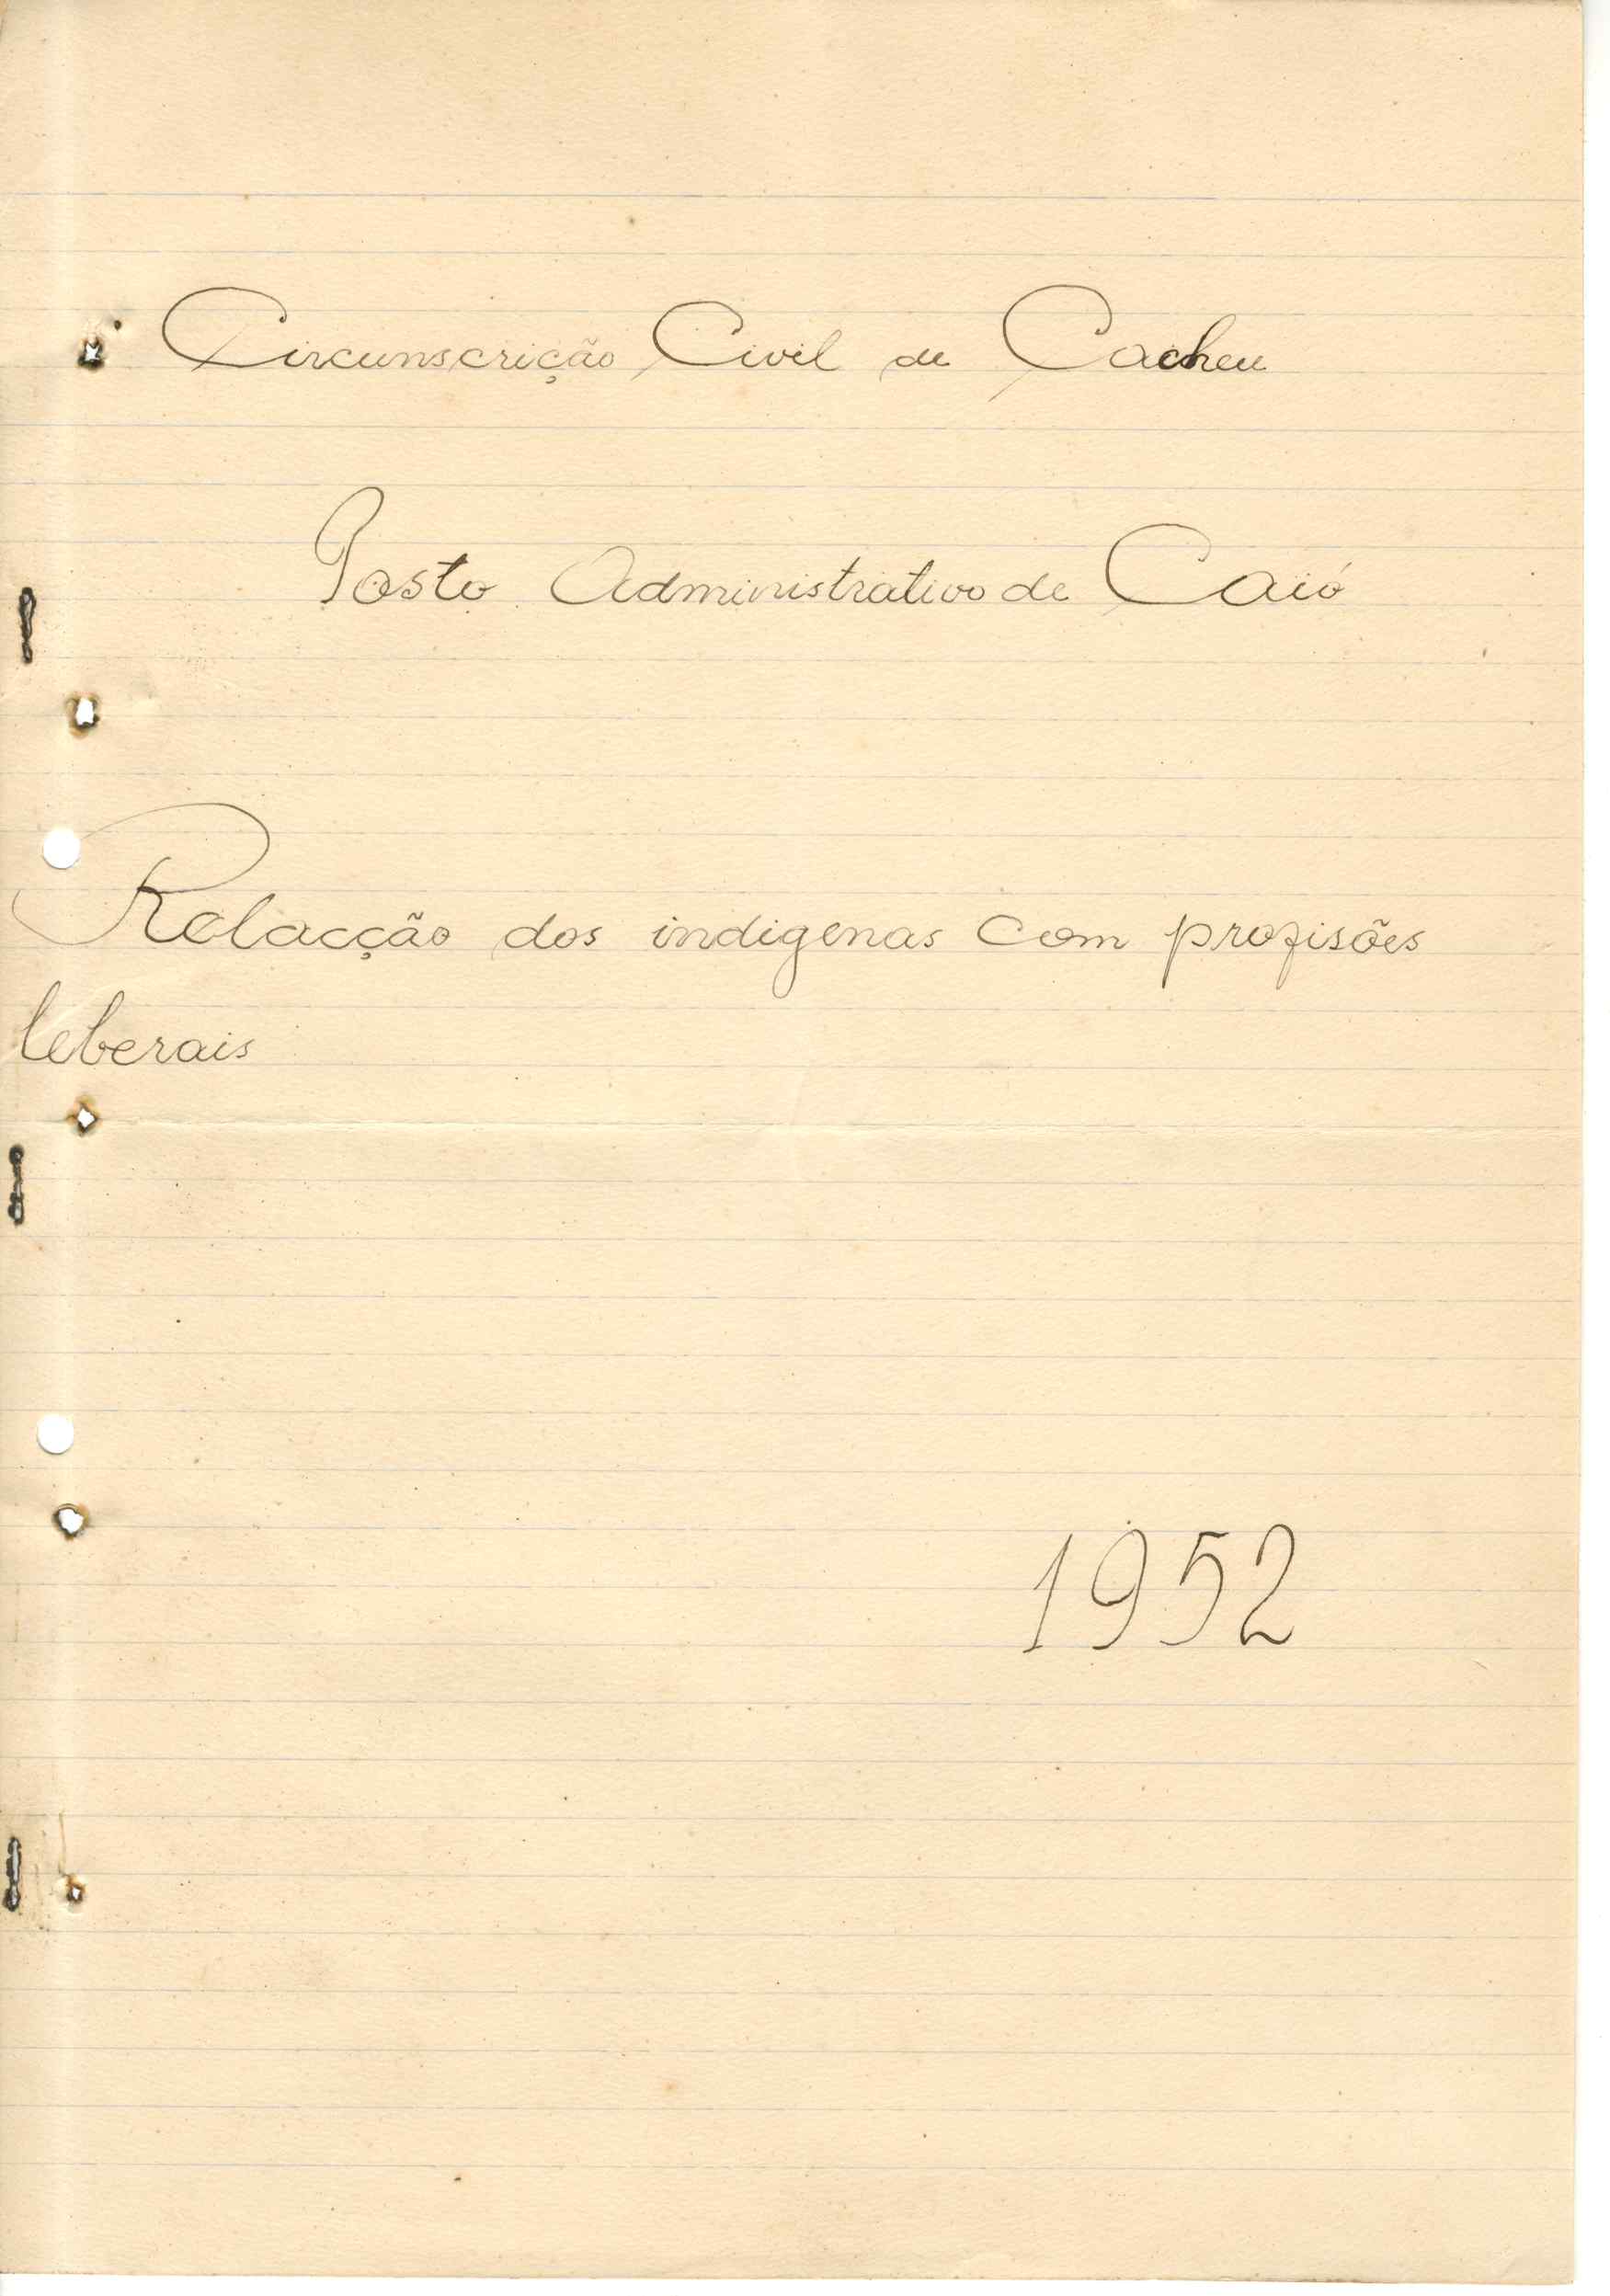 Circunscrição Civil de Cacheu
Posto Administrativo de Caió
Relacção dos indigenas com profisões
leberais
1952